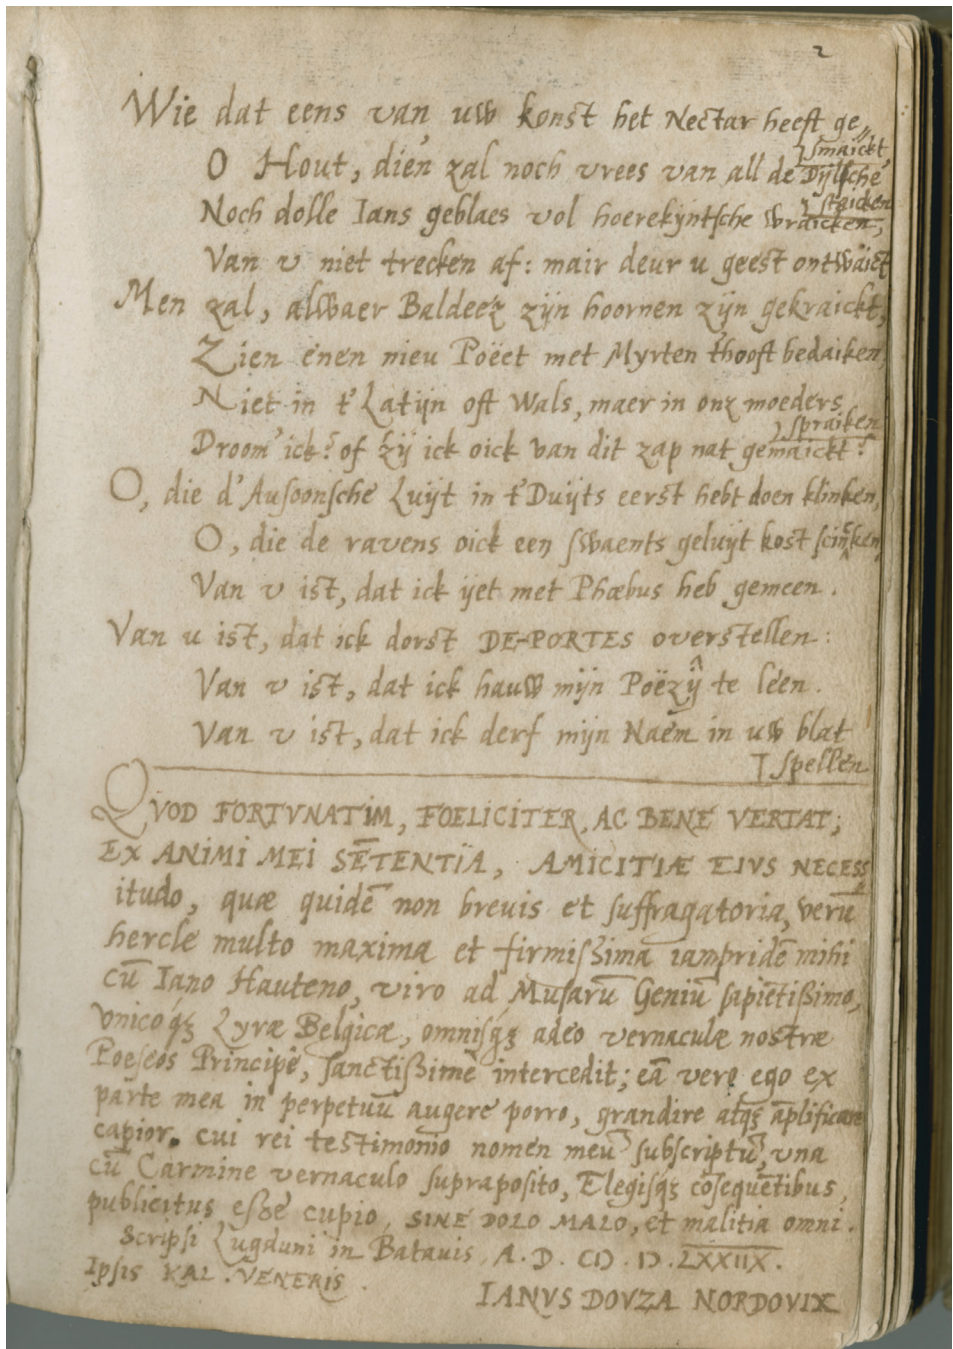 2
Wie dat eens van uw konst het Nectar heeft ge„
smaickt,
O Hout, dien zal noch vrees van all de Dijlsche
staicken
Noch dolle Ians geblaes vol hoerekijntsche wraicken,
Van v niet trecken af: mair deur u geest ontwaict
Men zal, alwaer Baldeez zijn hoornen zijn gekraickt,
Zien enen nieu Poëet met Myrten thooft bedaiken,
Niet in t'Latijn oft Wals, maer in onz moeders
spraiken
Droom' ick? of zij ick oick van dit zap nat gemaickt?
O, die d'Ausoonsche Luijt in t'Duijts eerst hebt doen klinken,
O, die de ravens oick een swaents geluijt kost scincken,
Van v ist, dat ick ijet met Phœbus heb gemeen.
Van u ist, dat ick dorst DE-PORTES overstellen:
Van v ist, dat ick hauw mijn Poëzij te leen.
Van v ist, dat ick derf mijn Naem in uw blat
spellen
QVOD FORTVNATIM, FOELICITER, AC BENE VERTAT;
EX ANIMI MEI SĒTENTIA, AMICITIÆ EIVS NECESS
itudo, quæ quidē non breuis et suffragatoria, verū
hercle multo maxima et firmißima iampridē mihi
cū Iano Hauteno, viro ad Musarū Geniū sapiētißimo,
vnicoq; Lyræ Belgicæ, omnisq; adeo vernaculæ nostræ
Poeseos Principe, sanctißime intercedit; eā vero ego ex
parte mea in perpetuū augere porro, grandire atq; āplificare
capior. cui rei testimonio nomen meū subscriptū, vna
cū Carmine vernaculo supraposito, Elegisq; cōsequētibus,
publicitus eße cupio, SINE DOLO MALO, et malitia omni.
Scripsi Lugduni in Batauis, A. D. CIↃ. IↃ. LXXIIX.
Ipsis KAL. VENERIS.
IANVS DOVZA NORDOVIX